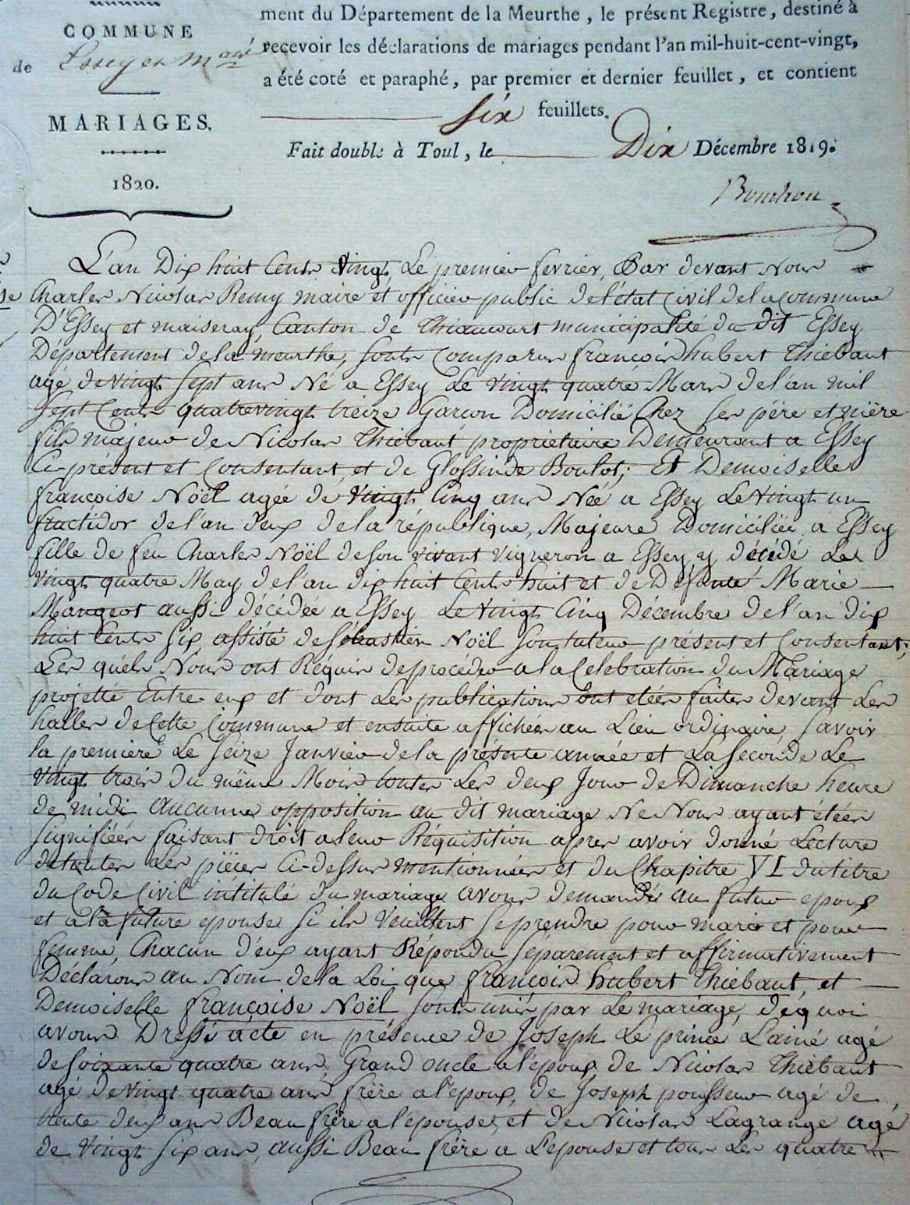 COMMUNE
de Essey et Mais
MARIAGES.
1820.
ment du Département de la Meurthe, le présent Registre, destiné à
recevoir les déclarations de mariages pendant l'an mil-huit-cent-vingt,
a été coté et paraphé, par premier et dernier feuillet, et contient
six feuillets.
Fait double à Toul, le Dix Décembre 1819.
L'an Dix huit Cents vingt Le premier fevrier, Par devant Nous
Charles Nicolas Remy maire et officier public de l'état Civil de la Commune
D'Essey et maiseray, Canton de Thiaucourt municipalité du dit Essey
Département de la meurthe, sonts Comparus françois hubert Thiebaut
agé de vingt sept ans Né a Essey Le vingt quatre Mars de l'an mil
sept Cents quatrevingt treize Garcon Domicilié Chez ses père et mère
fils majeur de Nicolas Thiebaut propriétaire Demeurant a Essey
Ci présent et Consentant et de Glossinde Boulot; Et Demoiselle
françoise Noël agée de vingt Cinq ans Née a Essey Le vingt un
fructidor de l'an deux de la république, Majeure Domiciliée a Essey
fille de feu Charles Noël de son vivant vigneron a Essey y décédé Le
vingt quatre May de l'an dix huit Cents huit et de Défunte Marie
Mangeot aussi décédée a Essey Le vingt Cinq Décembre de l'an dix
huit Cents six assisté de sébastien Noël son tuteur présent et Consentant;
Les quels Nous ont Requis de procéder a la Celebration du Mariage
projetté Entre eux et dont Les publications ont etées faites devant Les
halles de Cette Commune et ensuite affichées au Lieu ordinaire savoir
la premiere Le seize Janvier de la présente année et La seconde Le
vingt trois du même Mois toutes Les deux Jour de Dimanche heure
de midi aucunne opposition au dit mariage Ne Nous ayant étées
signifiées faisant droit a leur Réquisition apres avoir donné Lecture
de toutes Les piéces Ci-dessus mentionnées et du Chapitre VI du titre
du Code Civil intitulé du mariage avons demandés au futur epoux
et a la future epouse si ils veuillent se prendre pour mari et pour
femme, Chacun d'eux ayant Répondu séparement et affirmativement
Déclarons au Nom de la Loi que françois hubert Thiebaut, et
Demoiselle françoise Noël sonts unis par Le mariage, de quoi
avons Dressé acte en présence de Joseph Le prince L'ainé agé
de soixante quatre ans, Grand oncle a l'epoux de Nicolas Thiebaut
agé de vingt quatre ans frère a l'epoux, de Joseph pousseur agé de
trente deux ans Beau frère a l'épouse, et de Nicolas Lagrange agé
de vingt six ans, aussi Beau frère a L'epouse et tous Les quatre